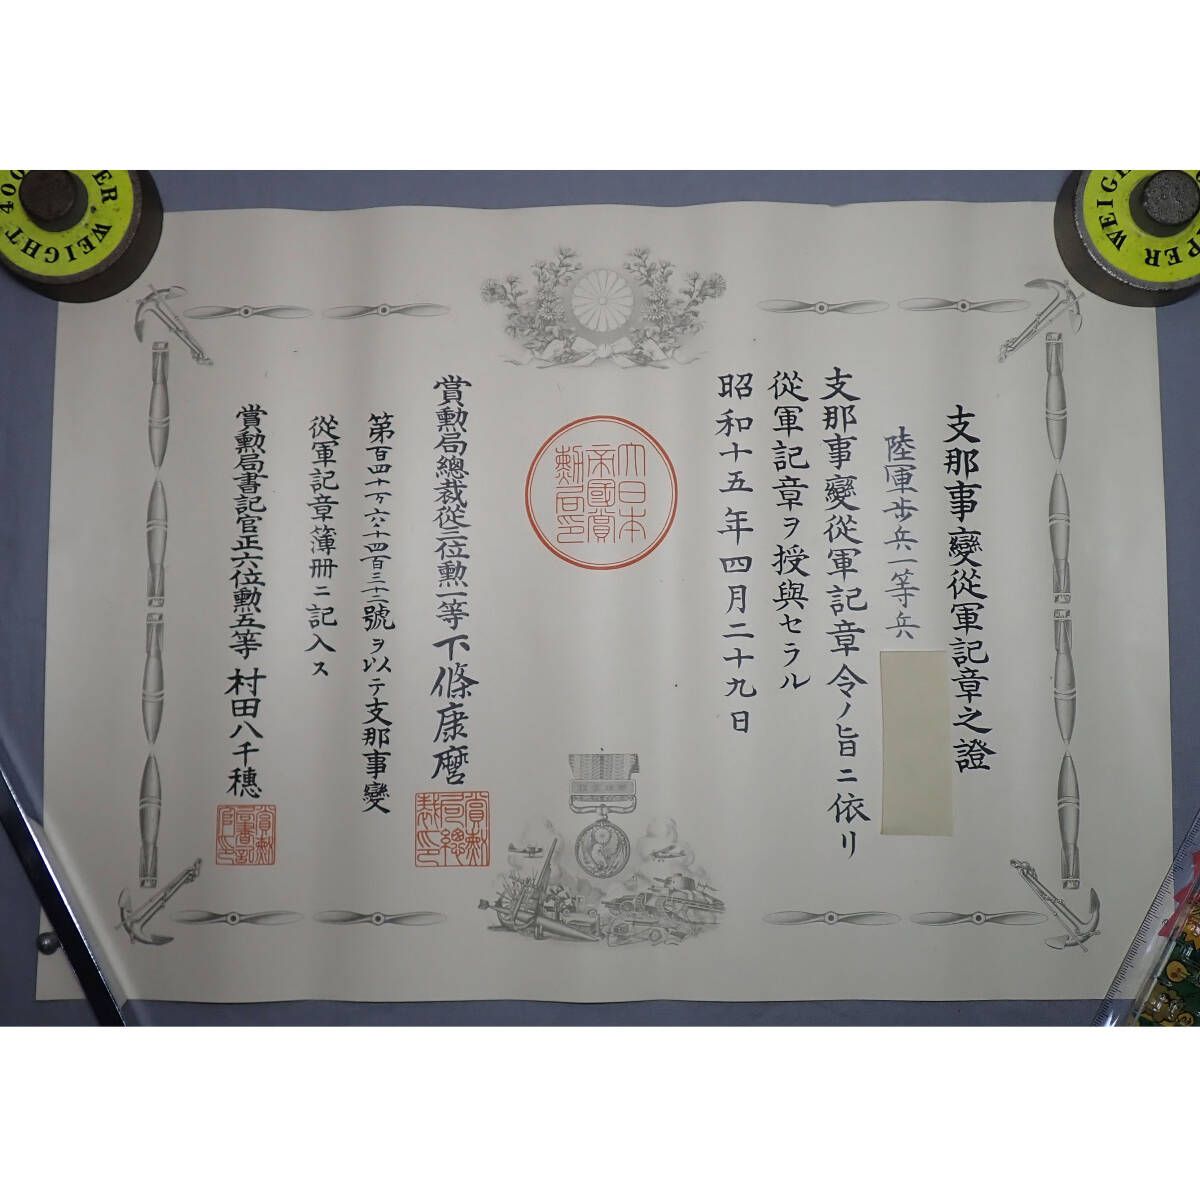 支那事變從軍記章之證
陸軍歩兵一等兵
支那事變從軍記章令ノ旨ニ依リ
從軍記章ヲ授與セラル
昭和十五年四月二十九日
大日本
帝國賞
勳局印
賞勲局總裁從三位勲一等下條康麿
賞勳
局總
裁印
第百四十万六千四百三十二號ヲ以テ支那事變
從軍記章簿册ニ記入ス
賞勲局書記官正六位勲五等村田八千穗
賞勳
局書記
官印
400
PER WEIGHT
PER WEIGHT